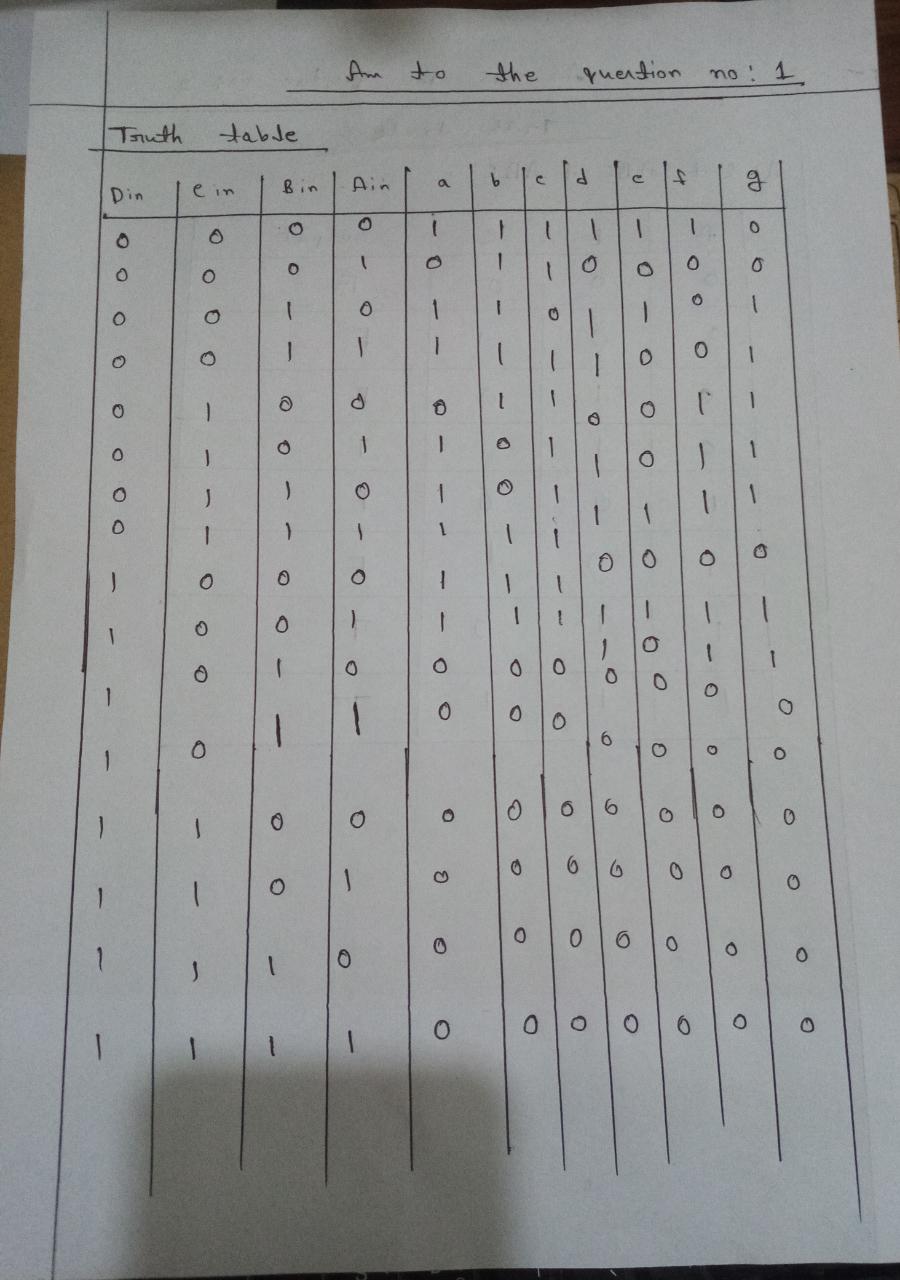 Am to the question no: 1
Truth table
Din Cin Bin Ain a b c d e f g
0 0 0 0 1 1 1 1 1 1 0
0 0 0 1 0 1 1 0 0 0 0
0 0 1 0 1 1 0 1 1 0 1
0 0 1 1 1 1 1 1 0 0 1
0 1 0 0 0 1 1 0 0 1 1
0 1 0 1 1 0 1 1 0 1 1
0 1 1 0 1 0 1 1 1 1 1
0 1 1 1 1 1 1 0 0 0 0
1 0 0 0 1 1 1 1 1 1 1
1 0 0 1 1 1 1 1 0 1 1
1 0 1 0 0 0 0 0 0 0 0
1 0 1 1 0 0 0 0 0 0 0
1 1 0 0 0 0 0 0 0 0 0
1 1 0 1 0 0 0 0 0 0 0
1 1 1 0 0 0 0 0 0 0 0
1 1 1 1 0 0 0 0 0 0 0